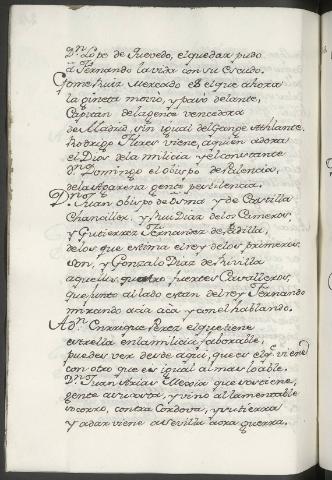 Dn Lope de Quevedo, el que dar pudo
a Fernando la vida con su escudo.
Gome Ruiz Mercado es el que ahora
la gineta movio, y pasò delante,
Capitan de la gente vencedora
de Madrid, sin igual del Gange Athlante
Rodrigo Flores viene, a quien adora
el Dios de la milicia y el constante
Dn Domingo el obispo de Palencia,
de la Agarena gente pestilencia.
Dn Juan obispo de Osma y de Castilla
Chanciller, y Rui Diaz de los Cameros,
y Gutierrez Fernandez de Padilla,
de los que estima el rey de los primeros
son, y Gonzalo Diaz de
aquellos quatro fuertes Cavalleros,
que junto al lado estan del rey Fernando
mirando acia acà y con el hablando.
A Dn Enrrique Perez el que tiene
estrella en la milicia faborable,
puedes ver desde aqui, que es el q viene
con otro que es igual al mas loable.
Dn Juan Arias Mexia que sostiene,
gente a su costa, y vino al lamentable
socorro, contra Cordova, y su tierra
y aora viene a Sevilla a esta guerra.